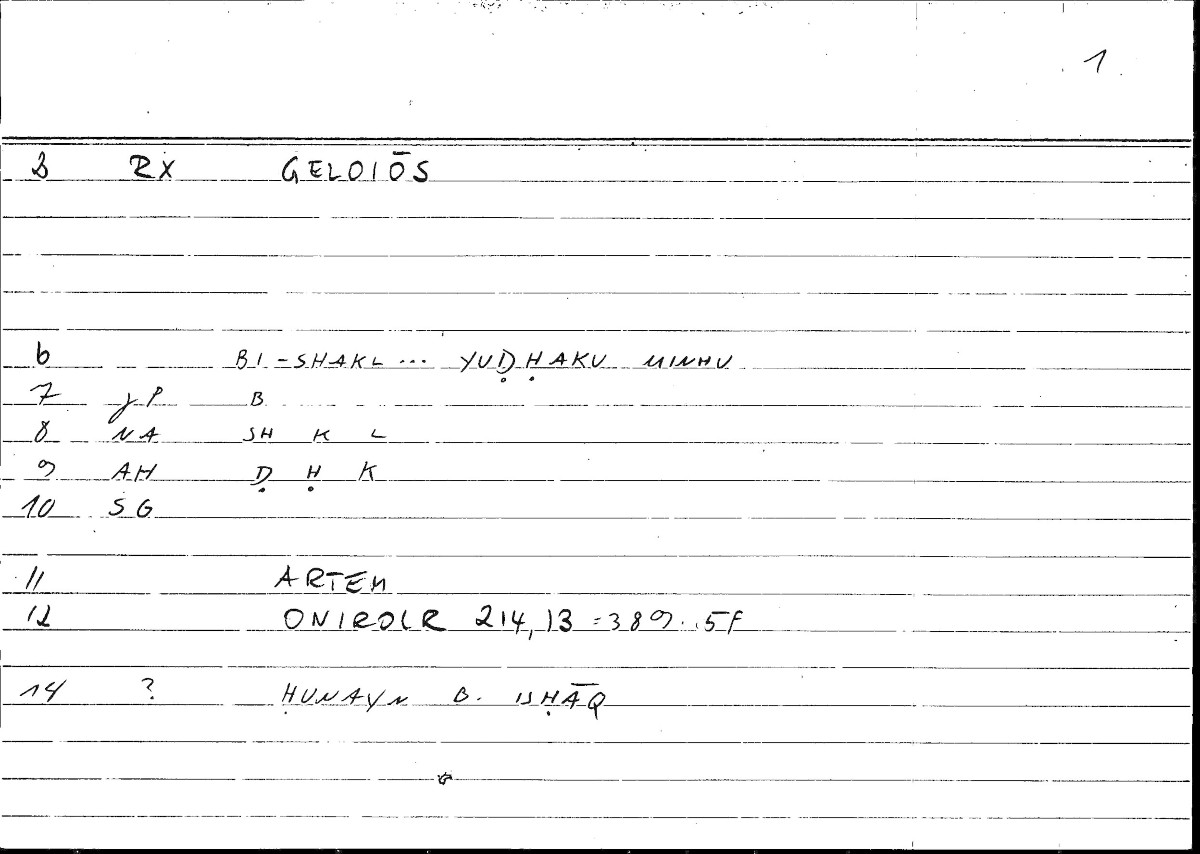 1
3 RX GELOIŌS
6 BI-SHAKL ... YUḌḤAKU MINHU
7 jP B
8 NA SH K L
9 AH Ḍ Ḥ K
10 SG
11 ARTEM
12 ONIROCR 214,13 = 389.5f
14 ? ḤUNAYN B. ISḤĀQ